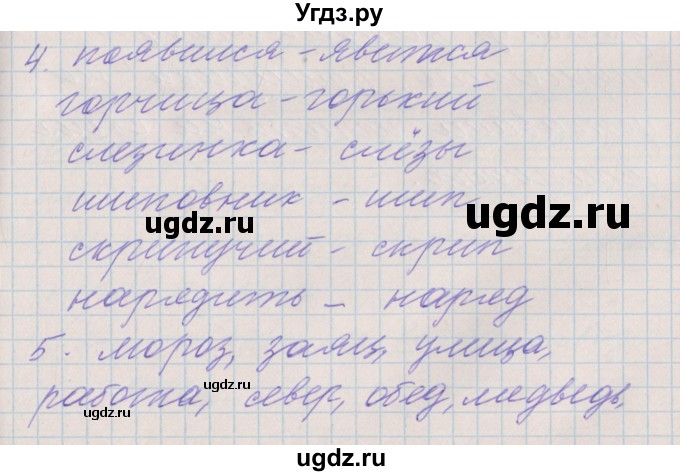 Угдз.ру
4. появился - явится
горчица - горький
слезинка - слёзы
шиповник - шип
ugdz.ru
ugdz.ru
скрипучий - скрип
нарядить - наряд
5. мороз, заяц, улица,
ugdz.ru
работа, север, обед, медведь,
ugdz.ru
ugdz.ru